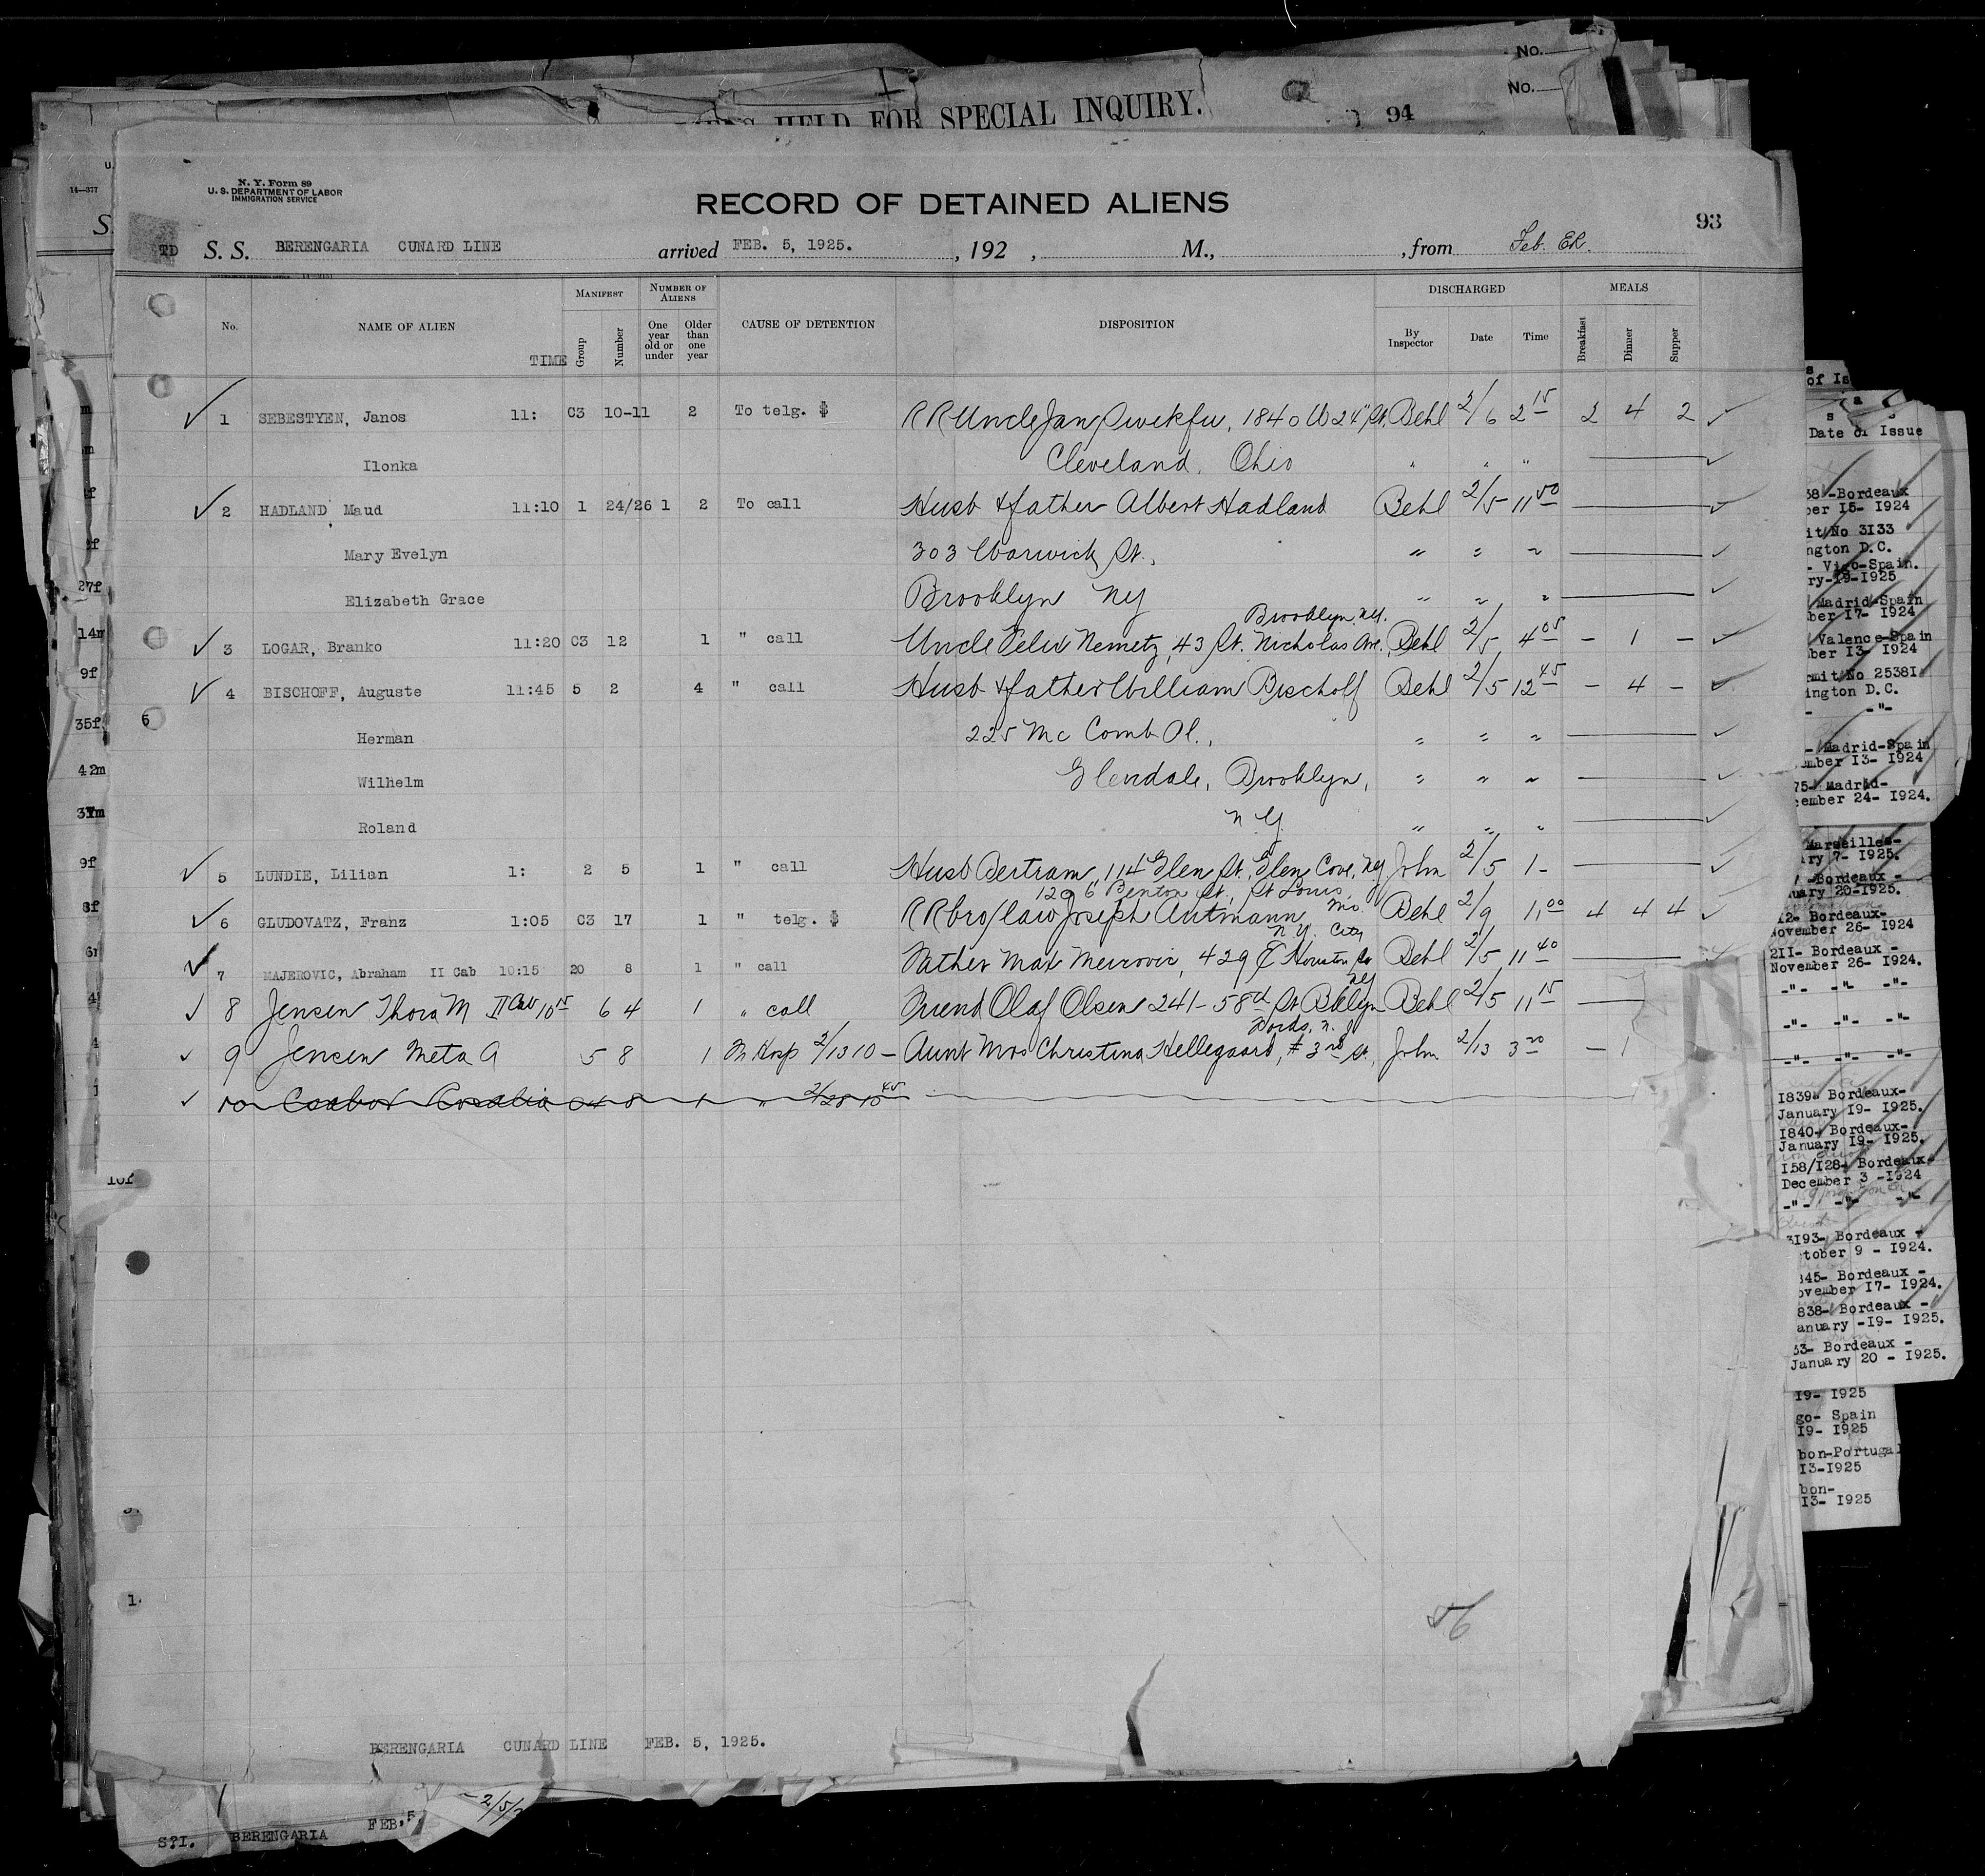 No.
No.
HELD FOR SPECIAL INQUIRY.
94
N. Y. Form 89
U. S. DEPARTMENT OF LABOR
IMMIGRATION SERVICE
14—377
RECORD OF DETAINED ALIENS
93
TD S. S. BERENGARIA CUNARD LINE arrived FEB. 5, 1925. , 192 , M., , from Feb.
No. NAME OF ALIEN TIME MANIFEST Group Number NUMBER OF ALIENS One year old or under Older than one year CAUSE OF DETENTION DISPOSITION DISCHARGED By Inspector Date Time MEALS Breakfast Dinner Supper
1 SEBESTYEN, Janos 11: C3 10-11 2 To telg. $ RR Uncle Jan 1840 W 24" St. Behl 2/6 2 15 2 4 2
Ilonka Cleveland, Ohio " " "
2 HADLAND Maud 11:10 1 24/26 1 2 To call Husb & father Albert Hadland Behl 2/5 11 50
Mary Evelyn 303 Warwick St., " " "
Elizabeth Grace Brooklyn NY " " "
Brooklyn, N.Y.
3 LOGAR, Branko 11:20 C3 12 1 " call Uncle Felix Nemetz, 43 St. Nicholas Ave. Behl 2/5 4 05 - 1 -
4 BISCHOFF, Auguste 11:45 5 2 4 " call Husb & father William Bischoff Behl 2/5 12 45 - 4 -
Herman 225 Mc Comb Pl., " " "
Wilhelm Glendale, Brooklyn, " " "
Roland N.Y. " " "
5 LUNDIE, Lilian 1: 2 5 1 " call Husb Bertram, 114 Glen St., Glen Cove, NY John 2/5 1-
1296 Benton St., St Louis, Mo.
6 GLUDOVATZ, Franz 1:05 C3 17 1 " telg. $ RR bro/law Joseph Autmann Behl 2/9 1,00 4 4 4
N.Y. City
7 MAJEROVIC, Abraham II Cab 10:15 20 8 1 " call Father Max Meirovic, 429 E Houston St Behl 2/5 11 40
NY
8 Jensen Thora M II Cab 10 15 6 4 1 " call Friend Olaf Olsen 241-58th St Bklyn Behl 2/5 11 15
Fords, N. J
9 Jensen Meta A 5 8 1 In Hosp 2/13 10 - Aunt Mrs Christina Hellegaard, # 3rd St., John 2/13 3 20 - 1
10 Csabot Rosalia C4 8 1 " 2/28 10 45
56
BERENGARIA CUNARD LINE FEB. 5, 1925.
S.I. BERENGARIA FEB. 5,
27f
14m
9f
35f
6
42m
9f
8f
Date of Issue
38-Bordeaux
ber 15- 1924
it/No 3133
ngton D.C.
- Vigo-Spain.
ry-19-1925
Madrid-Spain
ber 17- 1924
Valence-Spain
ber 13- 1924
rmit/No 25381
ington D.C.
- -"-
- Madrid-Spain
ember 13- 1924
75- Madrid-
cember 24- 1924.
Marseilles-
ry 7- 1925.
-Bordeaux -
uary 20-1925.
12- Bordeaux-
November 26- 1924
211- Bordeaux -
November 26- 1924.
-"- -"- -"-
-"- -"- -"-
-"- -"- -"-
1839- Bordeaux-
January 19- 1925.
1840- Bordeaux-
January 19- 1925.
158/128- Bordeaux-
December 3 -1924
-"- -"- -"-
3193- Bordeaux -
ctober 9 - 1924.
845- Bordeaux -
ovember 17- 1924.
838- Bordeaux -
anuary -19- 1925.
53- Bordeaux -
January 20 - 1925.
19- 1925
go- Spain
19- 1925
bon-Portugal
13-1925
bon-
13- 1925